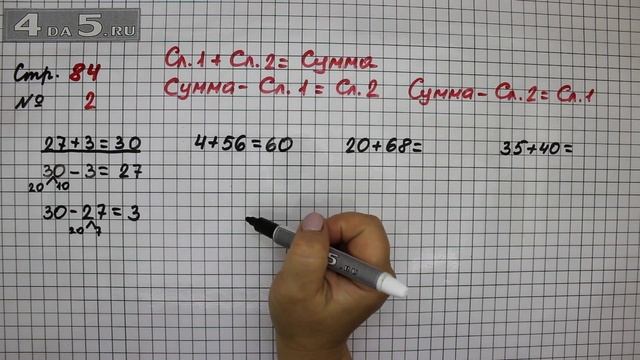 4 DA 5.RU
Стр. 84
№ 2
Сл. 1 + Сл. 2 = Сумма
Сумма - Сл. 1 = Сл. 2
Сумма - Сл. 2 = Сл. 1
27 + 3 = 30
30 - 3 = 27
20 10
30 - 27 = 3
20 7
4 + 56 = 60
20 + 68 =
35 + 40 =